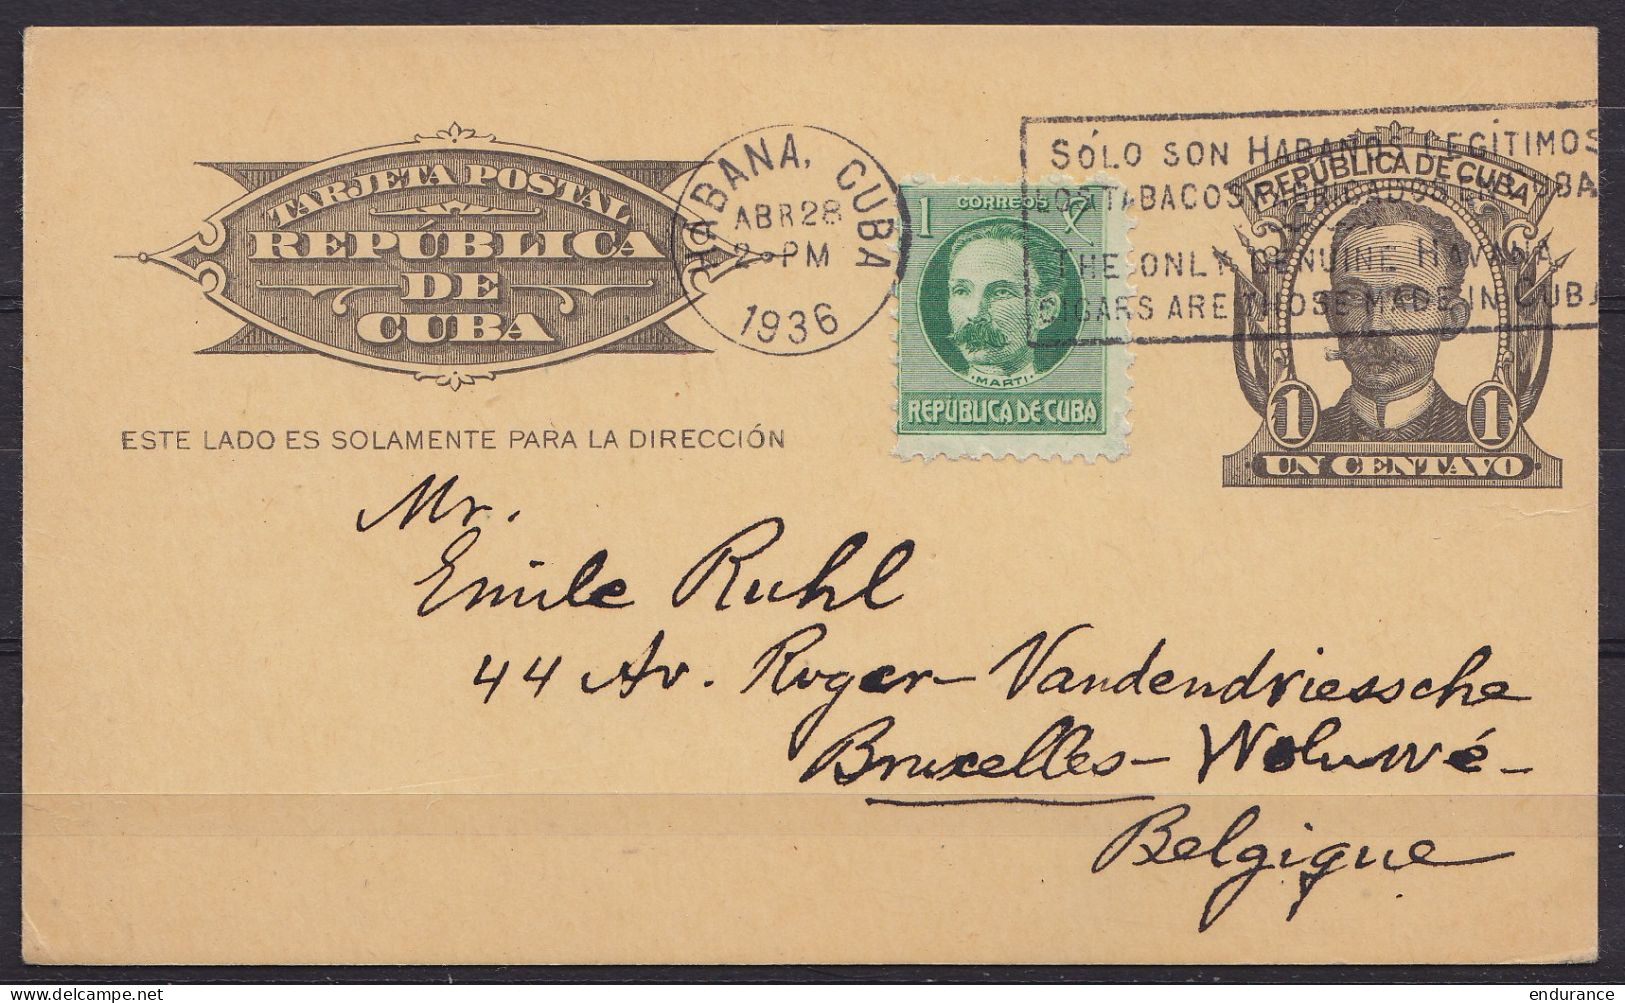 TARJETA POSTAL
REPÚBLICA
DE
CUBA
HABANA, CUBA
ABR 28
2 - PM
1936
1 CORREOS
MARTI
REPÚBLICA DE CUBA
SÓLO SON HABANOS LEGÍTIMOS
LOS TABACOS FABRICADOS EN CUBA
THE ONLY GENUINE HAVANA
CIGARS ARE THOSE MADE IN CUBA
REPUBLICA DE CUBA
1 1
UN CENTAVO
ESTE LADO ES SOLAMENTE PARA LA DIRECCIÓN
Mr.
Emile Ruhl
44 Av. Roger-Vandendriessche
Bruxelles - Woluwé -
Belgique
delcampe.net
endurance